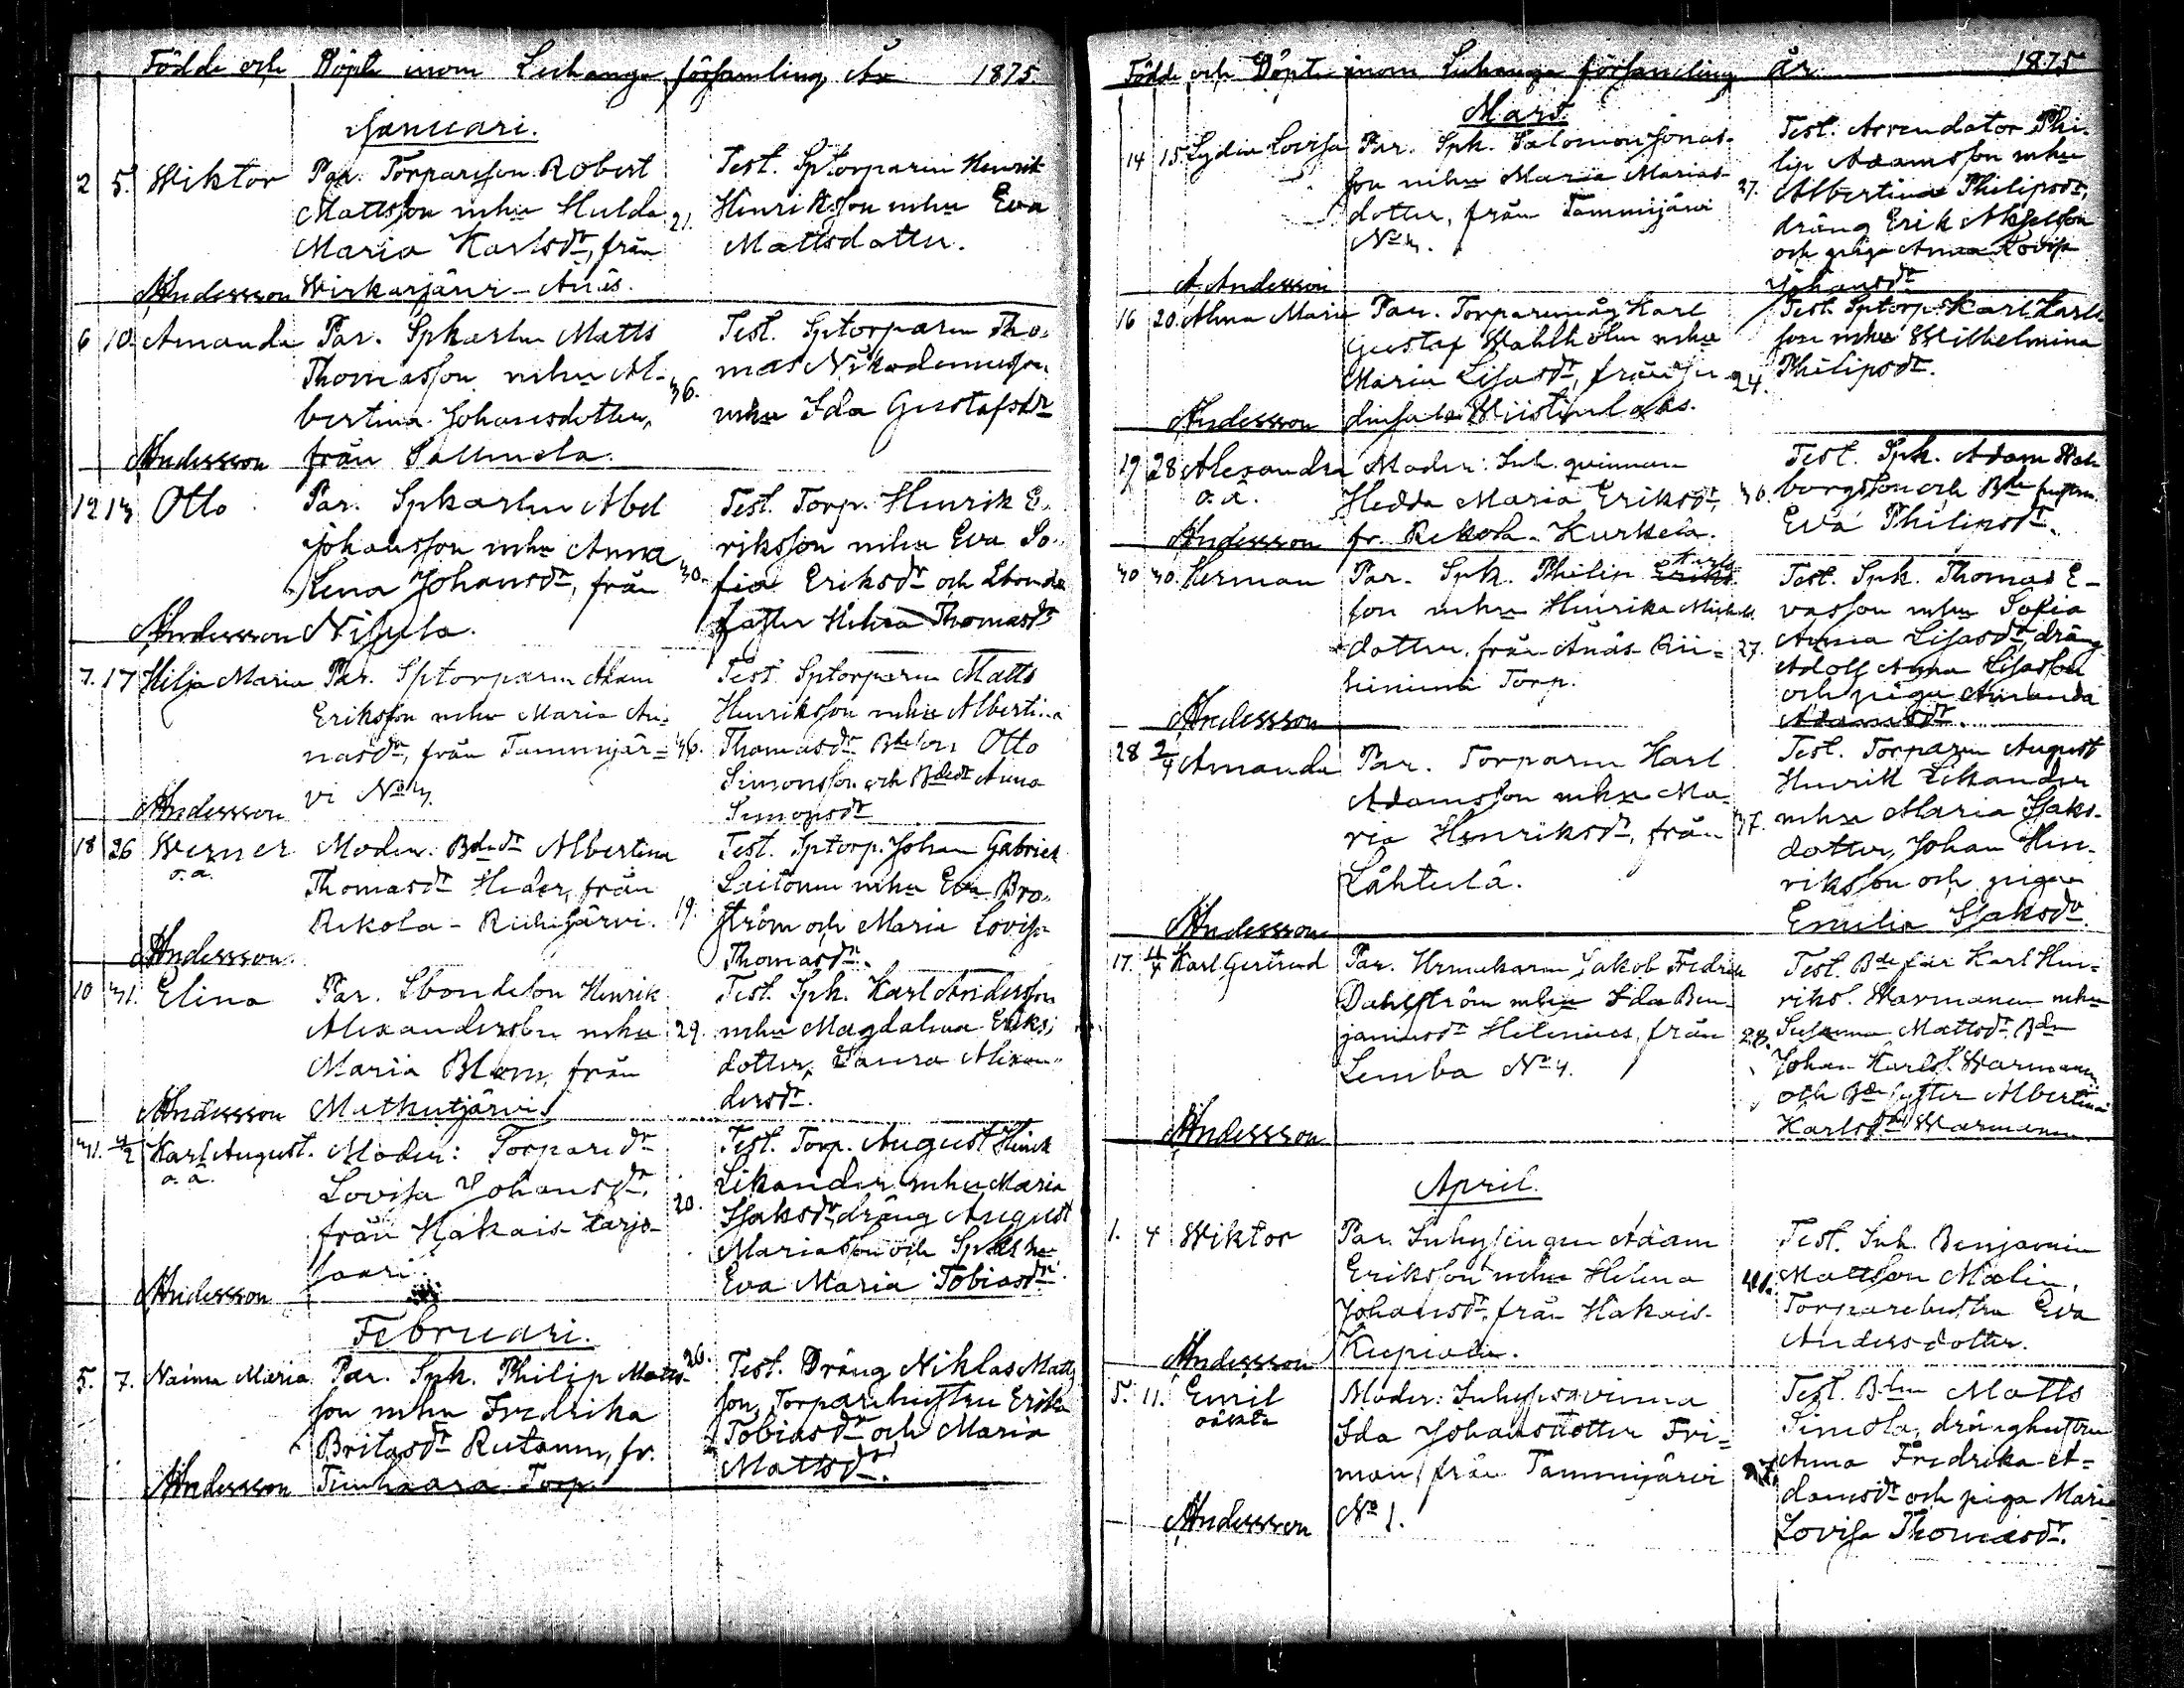 Födde och Döpte inom Luhanga församling År 1875.
Januari.
2 5. Wiktor Par. Torpareson Robert
Mattsson mhu Hulda
Maria Karlsdr, från
Andersson Wirkarjärvi - Anäs.
21.
Test. Sptorparen Henrik
Henriksson mhu Eva
Mattsdotter.
6 10. Amanda Par. Spkarlen Matts
Thomasson mhu Al-
bertina Johansdotter,
Andersson från
36.
Test. Sptorparen Tho-
mas Nikodemusson
mhu Ida Gustafsdr
12 13 Otto Par. Spkarlen Abel
Johansson mhu Anna
Lena Johansdr, från
Andersson Nisula.
30.
Test. Torp. Henrik E-
riksson mhu Eva So-
fia Eriksdr och Sbonde
Helena Thomasdr
7. 17 Hilja Maria Par. Sptorparen Adam
Eriksson mhu Maria An-
nasdr, från Tammijär-
Andersson vi No 3.
36.
Test. Sptorparen Matts
Henriksson mhu Albertina
Thomasdr Bdeson Otto
Simonsson och Bdedr Anna
Simonsdr
18 26 Werner Moder. Bdedr Albertina
o. ä. Thomasdr Heder, från
Rekola - Riihijärvi.
Andersson
19.
Test. Sptorp. Johan Gabriel
Laitonen mhu Eva Bro-
ström och Maria Lovisa
Thomasdr.
10 31. Elina Par. Sbondeson Henrik
Alexandersson mhu
Maria Blom, från
Andersson Matkutjärvi
29.
Test. Spk. Karl Andersson
mhu Magdalena Eriks-
dotter, Laura Alexan-
dersdr.
31. 4/2 Karl August. Moder: Torparedr
o. ä. Lovisa Johansdr,
från Hakais-Karjo-
saari.
Andersson
20.
Test. Torp. August Henrik
Likander mhu Maria
Isaksdr, dräng August
Mariasson och
Eva Maria Tobiasdr.
Februari.
5. 7. Naima Maria Par. Spk. Philip Matts-
son mhu Fredrika
Britasdr Rutanen, fr.
Andersson Torp.
26.
Test. Dräng Niklas Matts
son, Torparehustru Erika
Tobiasdr och Maria
Mattsdr.
Födde och Döpte inom Luhanga församling år 1875
Mars.
14 15. Lydia Lovisa Par. Spk. Salomon Jonas-
son mhu Maria Marias-
dotter, från Tammijärvi
No 3.
A. Andersson
27.
Test. Arrendator Phi-
lip Adamsson mhu
Albertina Philipsdr,
dräng Erik Akselsson
och piga Anna Lovisa
Johansdr
16 20. Alma Maria Par. Torparemåg Karl
Gustaf Wahlholm mhu
Maria Lisasdr, från
Andersson
24.
Test. Sptorp. Karl Karls
son mhu Wilhelmina
Philipsdr.
19 28 Alexandra Moder: Inh. qvinnan
o. ä. Hedda Maria Eriksdr,
Andersson fr. Rekola - Kurkela.
36.
Test. Spk. Adam Wal
borgsson och Bde
Eva Philipsdr.
30 30. Herman Par. Spk. Philip Karls
son mhu Henrika Michels
dotter, från Anäs Rii-
Torp.
Andersson
27.
Test. Spk. Thomas E-
vasson mhu Sofia
Anna Lisasdr, dräng
Adolf Anna Lisasson
och piga Amanda
Adamsdr.
28 2/4 Amanda Par. Torparen Karl
Adamsson mhu Ma-
ria Henriksdr, från
Lähtelä.
Andersson
37.
Test. Torparen August
Henrik Likander
mhu Maria Isaks-
dotter, Johan Hen-
riksson och pigan
Emilia Isaksdr.
17. 4/4 Karl Gertrud Par. Hemmakarln Jakob Fredrik
Dahlström mhu Ida Ben-
jaminsdr Helenius, från
Lemba No 4.
Andersson
28.
Test. Bde far Karl Hen-
riks. Warmanen mhu
Susanna Mattsdr, Bden
Johan Karls. Warmanen
och Bde syster Albertina
Karlsdr Warmanen.
April.
1. 4 Wiktor Par. Inhysingen Adam
Eriksson mhu Helena
Johansdr, från Hakais-
Andersson
41.
Test. Inh. Benjamin
Mattson Malin,
Torparehustru Eva
Andersdotter.
5. 11. Emil Moder: Inhysqvinna
oäkta Ida Johansdotter Fri-
man, från Tammijärvi
Andersson No 1.
27.
Test. Bden Matts
Simola, dränghustru
Anna Fredrika A-
damsdr och piga Maria
Lovisa Thomasdr.